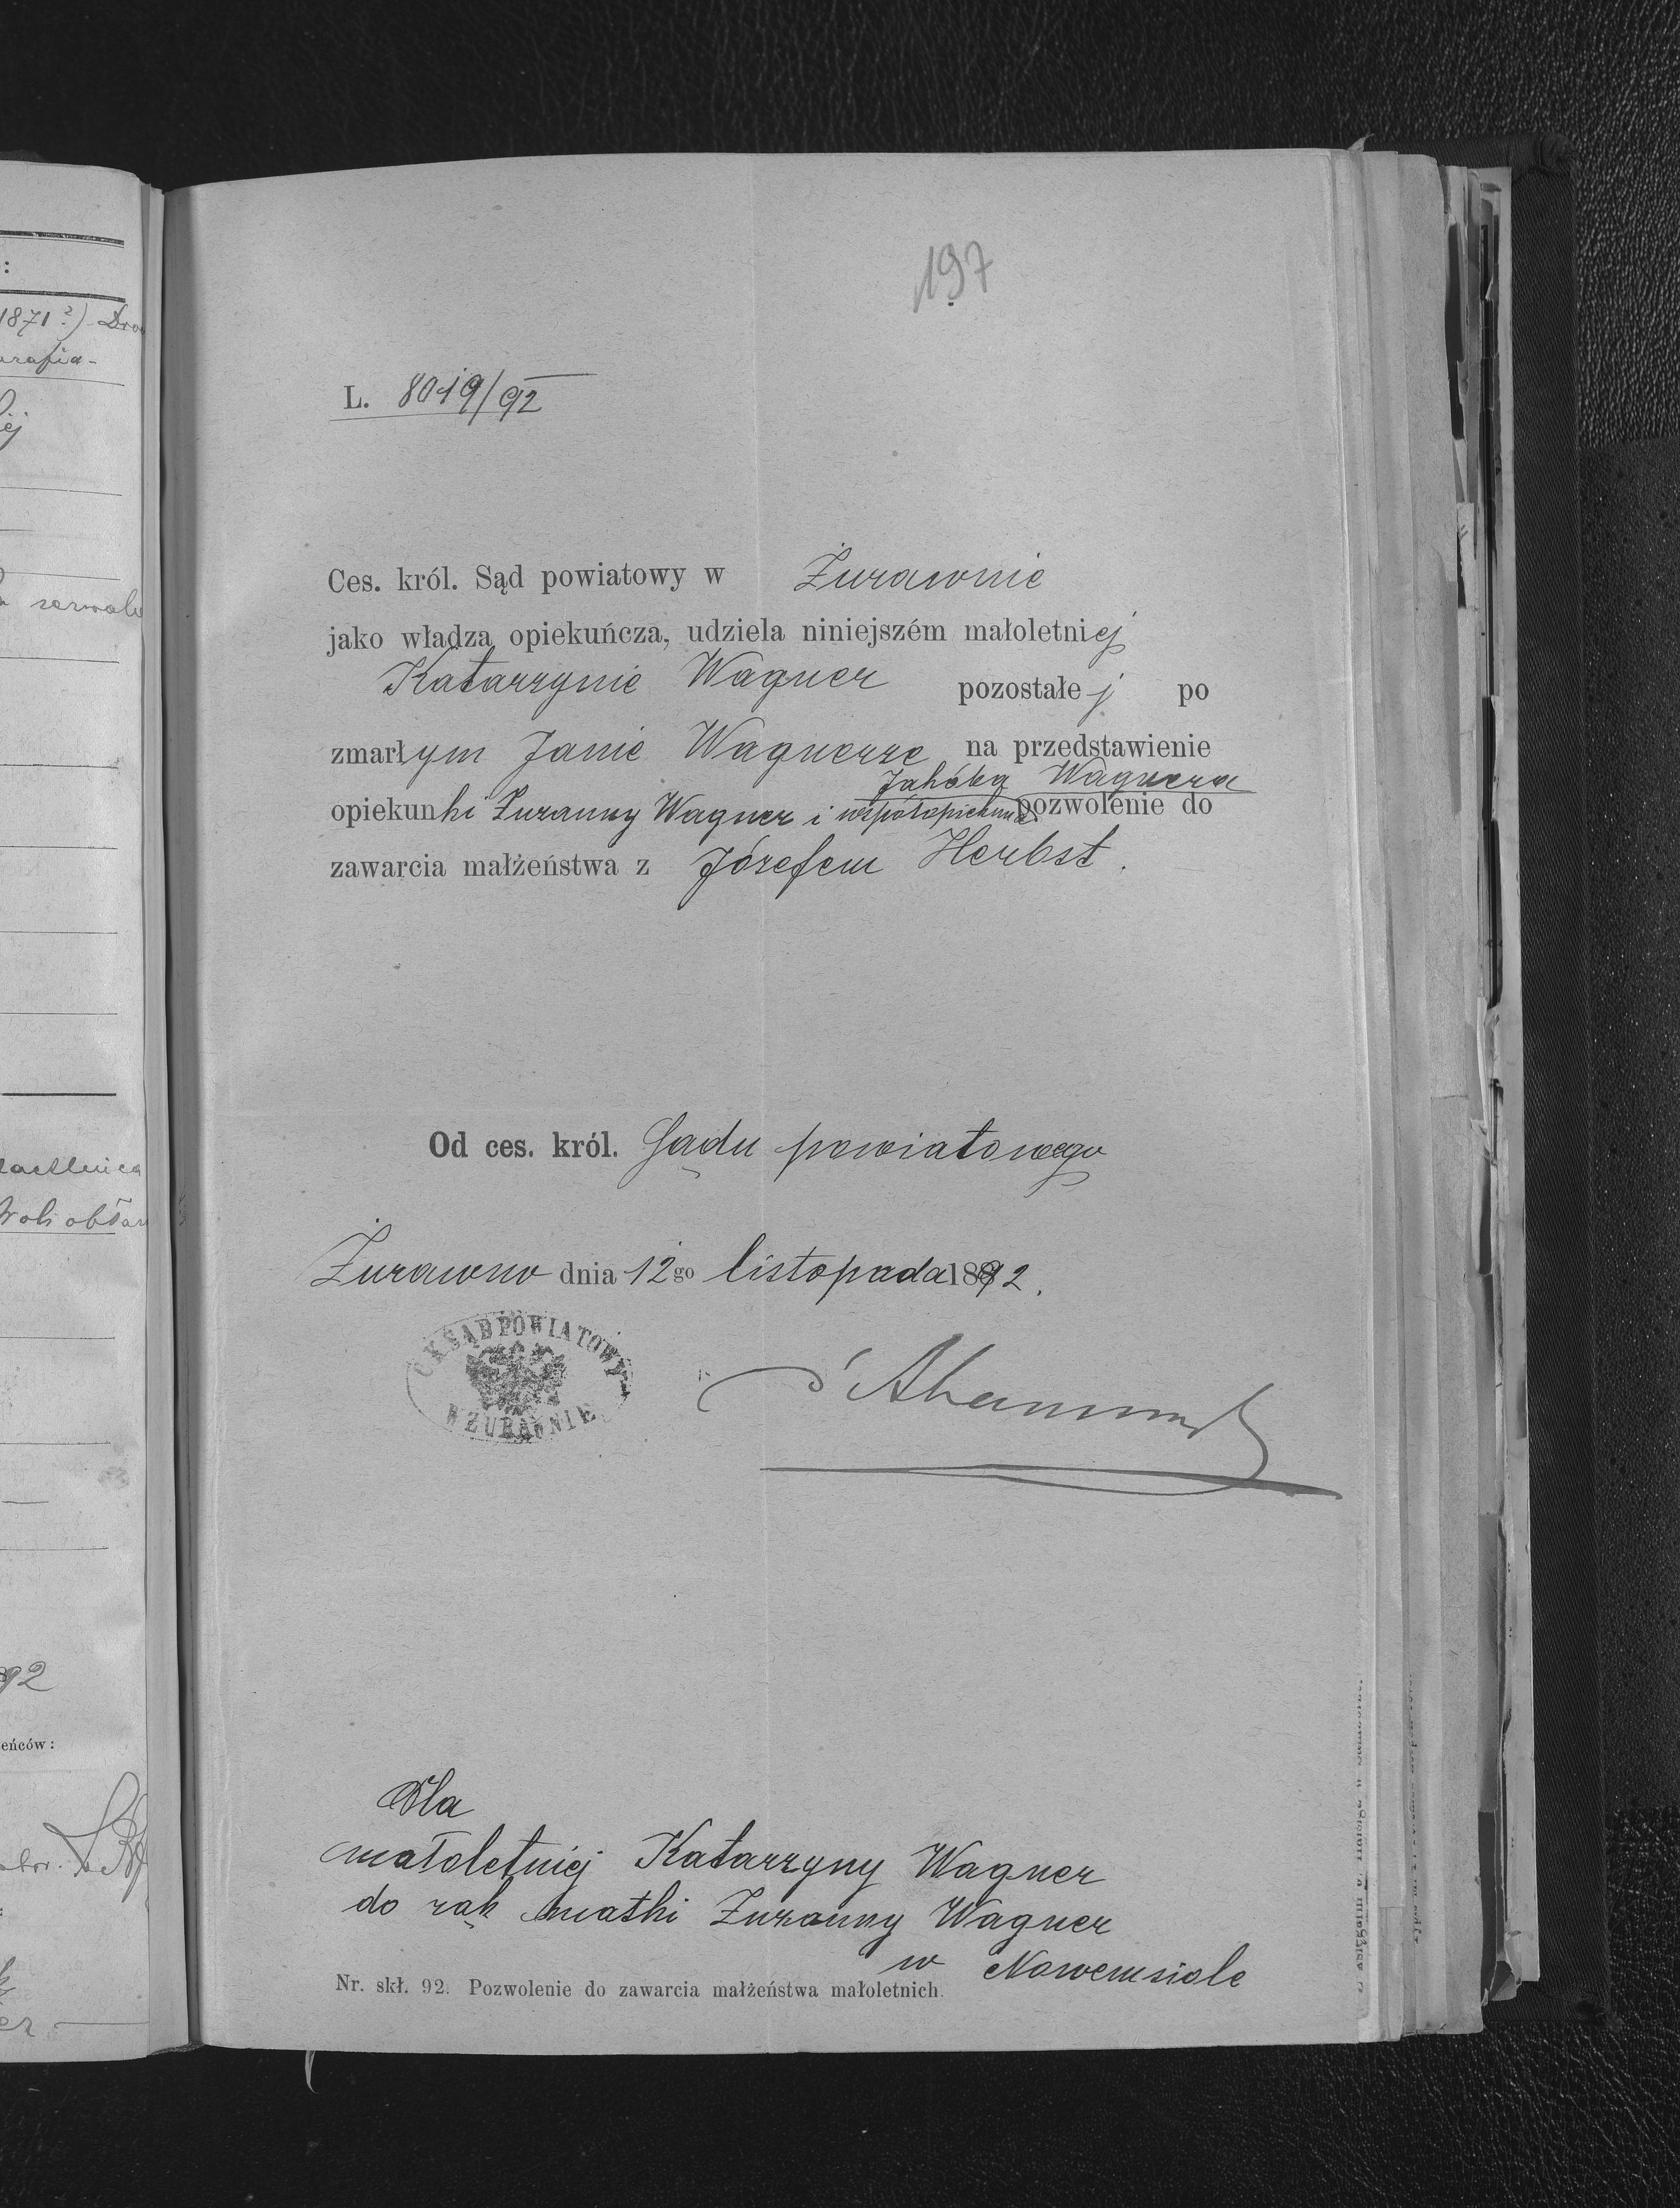 197
L. 8019/92
Ces. król. Sąd powiatowy w Żurawnie
jako władza opiekuńcza, udziela niniejszém małoletniej
Katarzynie Wagner pozostałej po
zmarłym Janie Wagnerze na przedstawienie
Jakóba Wagnera
opiekunki Zuzanny Wagner i współopiekuna pozwolenie do
zawarcia małżeństwa z Józefem Herbst.
Od ces. król. Sądu powiatowego
Żurawno dnia 12go listopada 1892.
C.K. SĄD POWIATOWY
W ŻURAWNIE
Dla
małoletniej Katarzyny Wagner
do rąk matki Zuzanny Wagner
w Nowemsiole
Nr. skł. 92. Pozwolenie do zawarcia małżeństwa małoletnich.
1871?)
92
eńców: